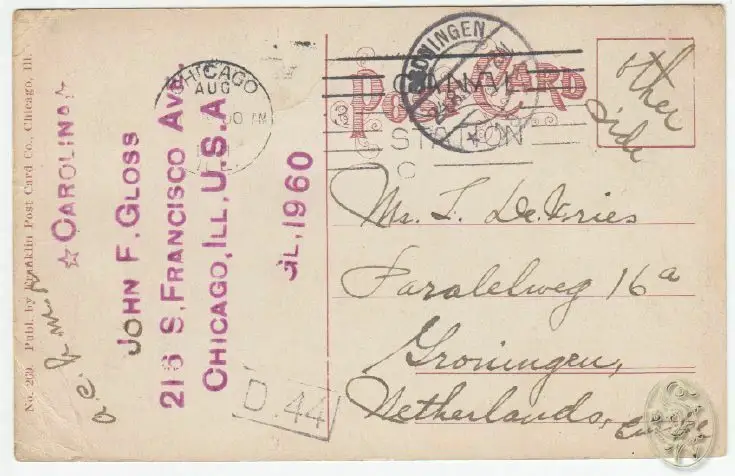 No. 269. Publ. by Franklin Post Card Co., Chicago, Ill.
☆CAROLINA☆
JOHN F. GLOSS
216 S. FRANCISCO AVE.
CHICAGO, ILL. U.S.A
GL, 1960
D.44
CHICAGO
AUG
ILL.
GRONINGEN
CANAL
STATION
Post CARD
other
side
Mr. L. DeVries
Paralelweg 16a
Groningen,
Netherlands,